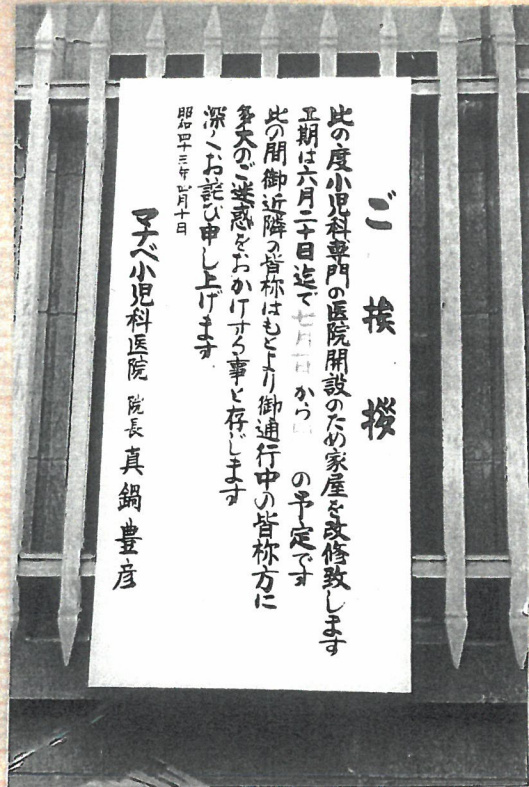 ご挨拶
此の度小児科専門の医院開設のため家屋を改修致します
工期は六月二十日迄で七月一日から の予定です
此の間御近隣の皆称はもとより御通行中の皆称方に
多大のご迷惑をおかけする事と存じます
深くお詫び申し上げます
昭和四十三年 月十日
マナベ小児科医院 院長 真鍋豊彦